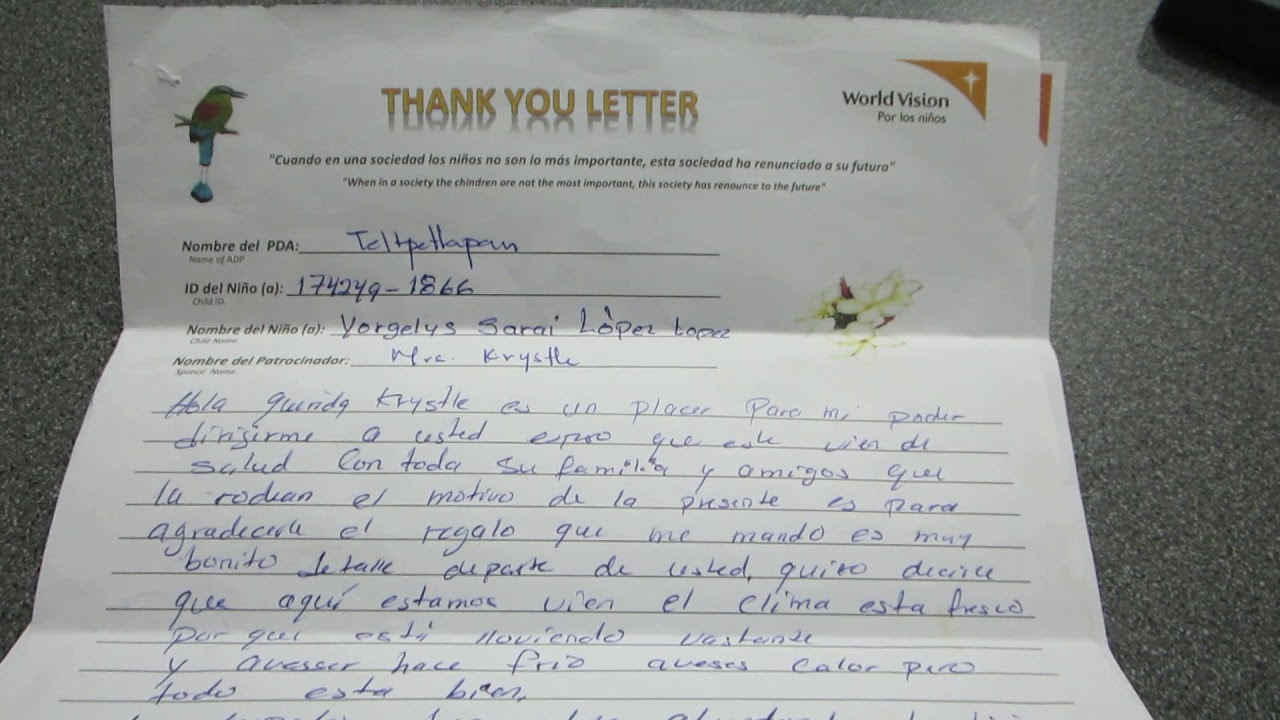 THANK YOU LETTER
World Vision
Por los niños
"Cuando en una sociedad los niños no son lo más importante, esta sociedad ha renunciado a su futuro"
"When in a society the chindren are not the most important, this society has renounce to the future"
Nombre del PDA: Teltpetlapan
Name of ADP
ID del Niño (a): 174249-1866
Child ID.
Nombre del Niño (a): Yorgelys Sarai López Lopez
Child Name.
Nombre del Patrocinador: Mrc. Krystle
Sponsor Name.
Hola querida Krystle es un placer Para mi poder
dirigirme a usted espero que este vien de
salud Con toda su familia y amigos que
la rodean el motivo de la presente es para
agradecerle el regalo que me mando es muy
bonito detalle departe de usted, quiro decirle
que aquí estamos vien el clima esta fresco
porque está lloviendo vastante
y avesser hace frio aveses calor pero
todo esta bien.